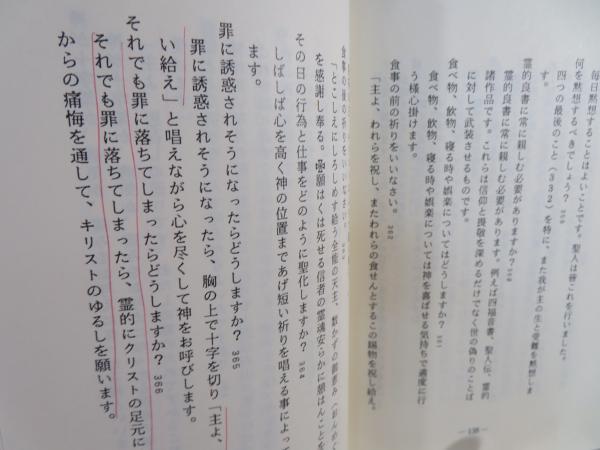 毎日黙想することはよいことです。聖人は皆これを行いました。
何を黙想するべきでしょう? 359
四つの最後のこと(332)を特に、また我が主の生と受難を黙想しま
す。
霊的良書に常に親しむ必要がありますか? 360
霊的良書に常に親しむ必要があります。例えば四福音書、聖人伝、霊的
諸作品です。これらは信仰と畏敬を深めるだけでなく世の偽りのことば
に対して武装させるものです。
食べ物、飲物、寝る時や娯楽についてはどうしますか? 361
食べ物、飲物、寝る時や娯楽については神を喜ばせる気持ちで適度に行
う様心掛けます。
食事の前の祈りをいいなさい。 362
「主よ、われらを祝し、またわれらの食せんとするこの賜物を祝し給え。
— 138 —
食事の後の祈りをいいなさい。
「とこしえにしろしめす給う全能の天主、数かずの御恵み(おんめぐ
を感謝し奉る。✠願はくは死せる信者の霊魂安らかに憩はんことを
その日の行為と仕事をどのように聖化しますか? 364
しばしば心を高く神の位置まであげ短い祈りを唱える事によって
ます。
罪に誘惑されそうになったらどうしますか? 365
罪に誘惑されそうになったら、胸の上で十字を切り「主よ、
い給え」と唱えながら心を尽くして神をお呼びします。
それでも罪に落ちてしまったらどうしますか? 366
それでも罪に落ちてしまったら、霊的にクリストの足元に
からの痛悔を通して、キリストのゆるしを願います。